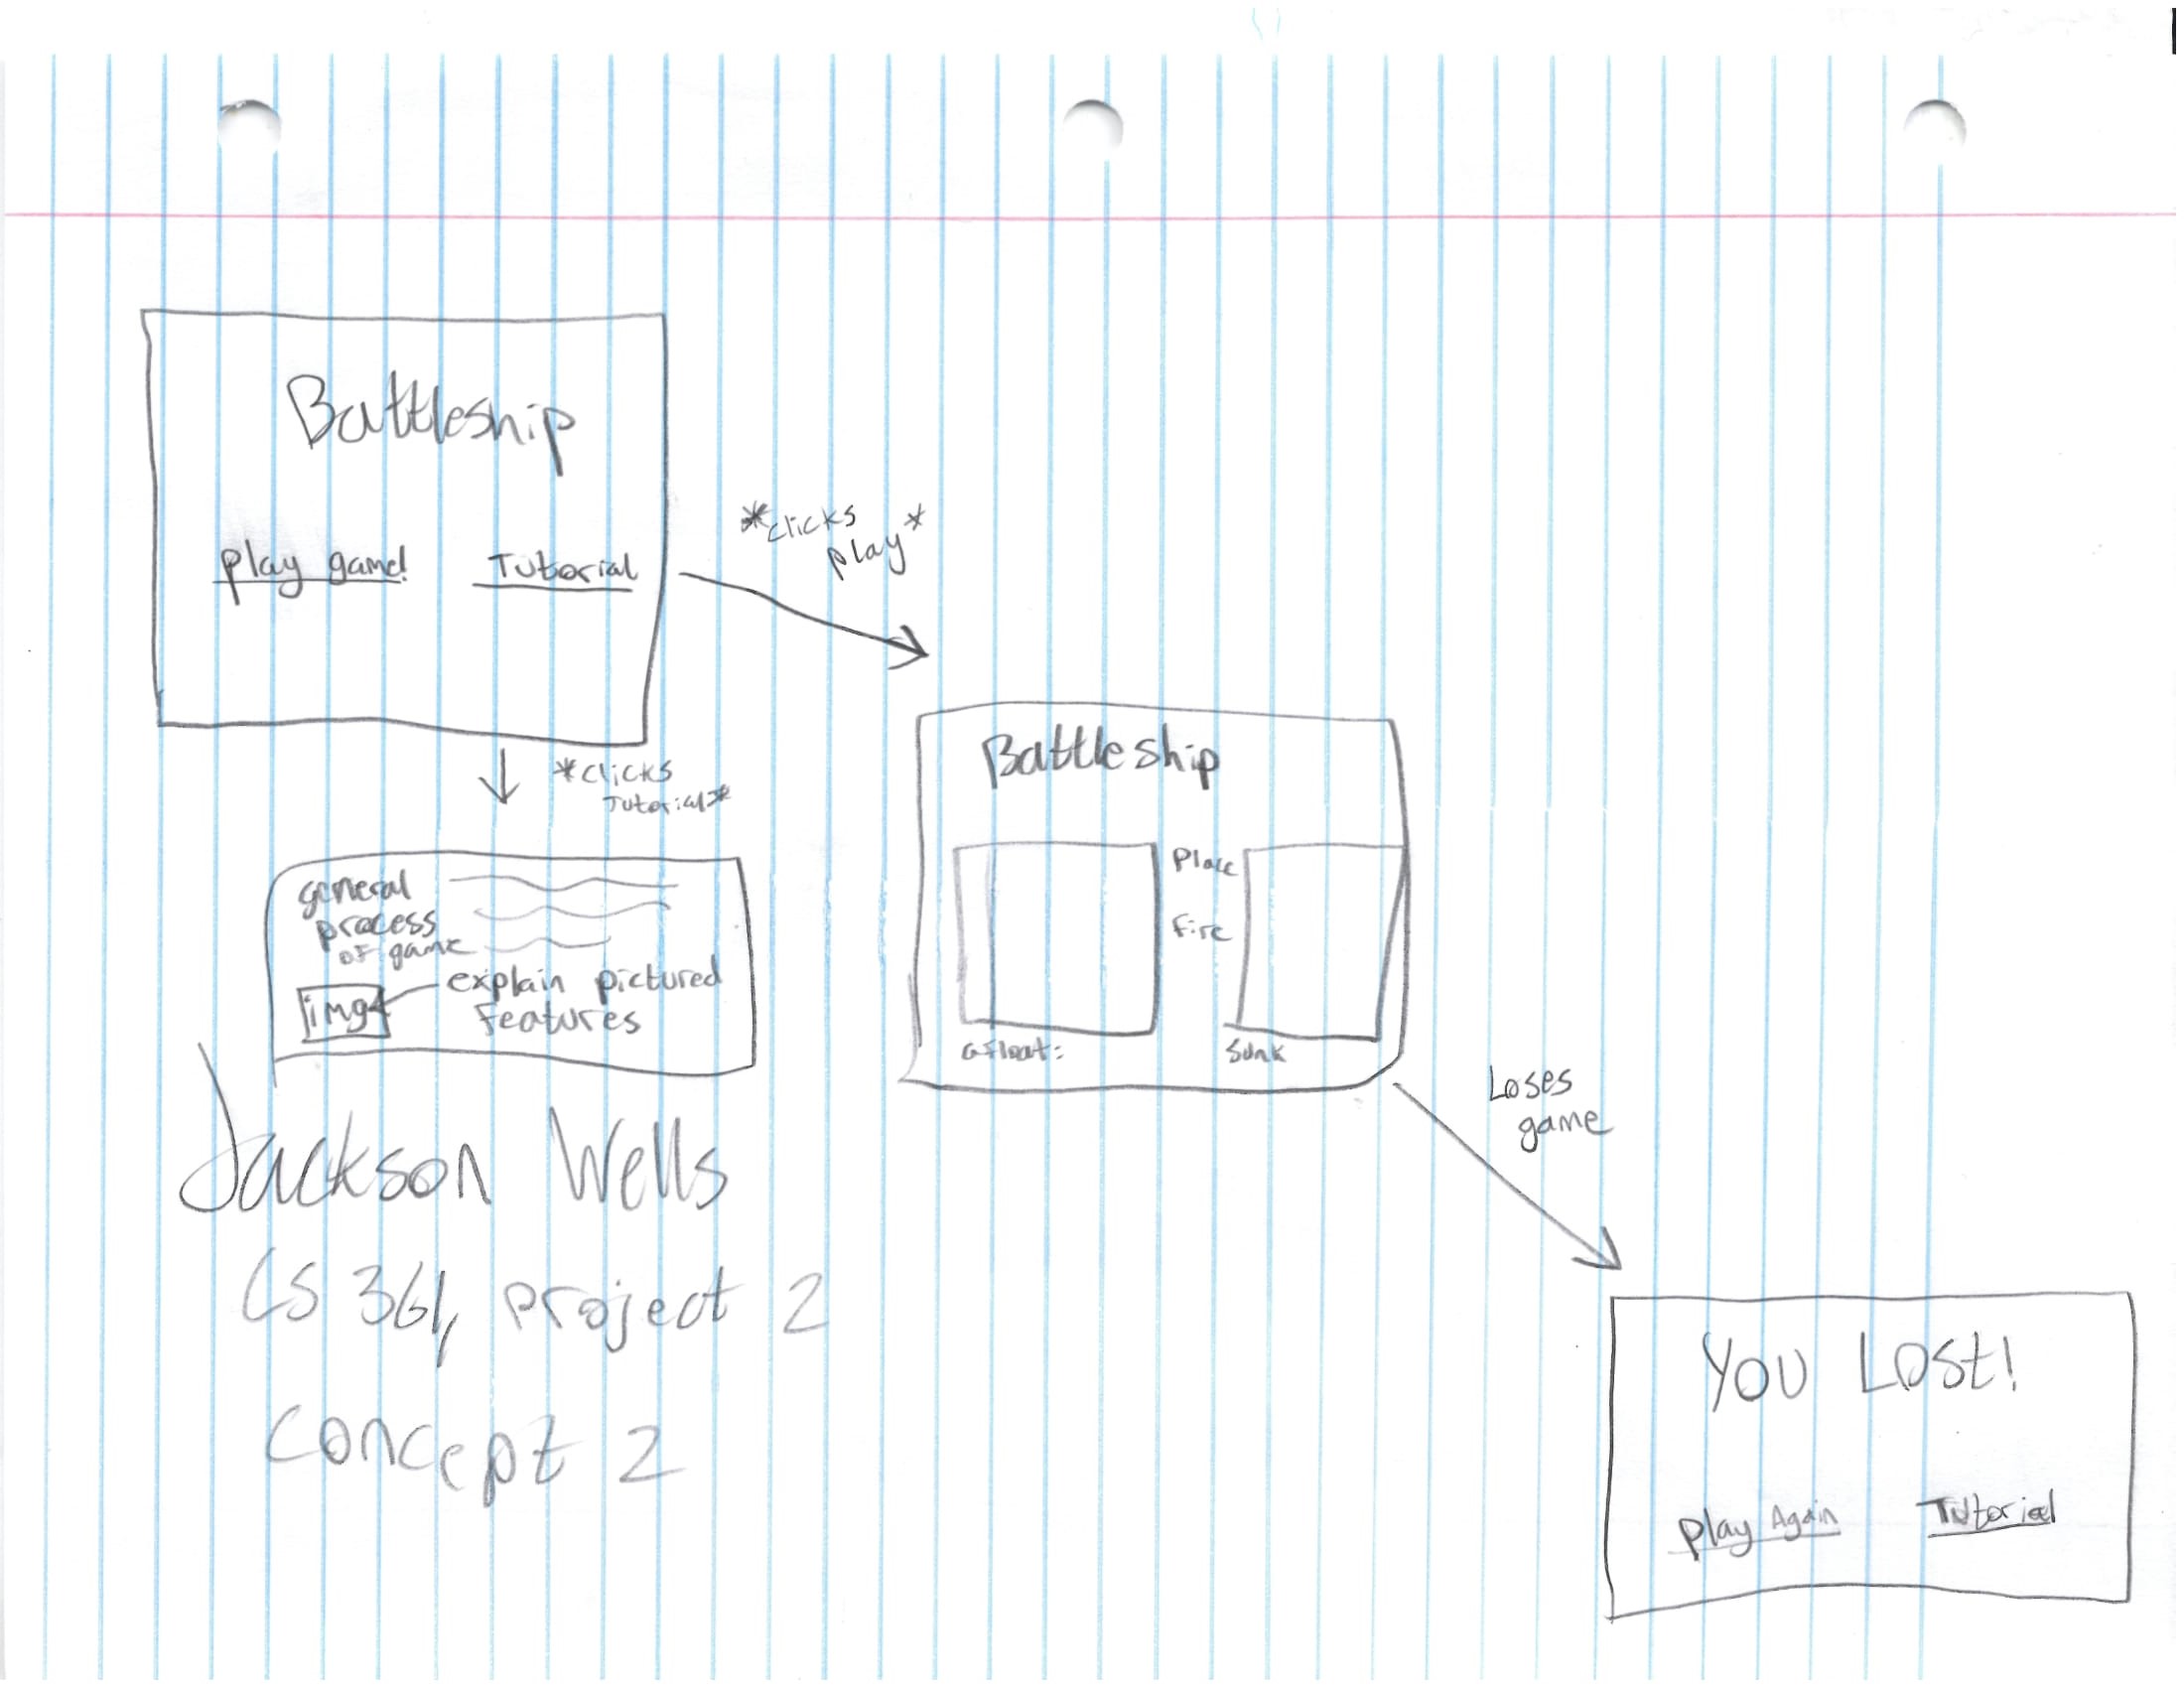 Battleship
play game!
Tutorial
*clicks
play*
*clicks
Tutorial*
general
process
of game
img
explain pictured
features
Battleship
Place
Fire
afloat:
Sunk
Loses
game
You Lost!
play Again
Tutorial
Jackson Wells
CS 361, project 2
Concept 2